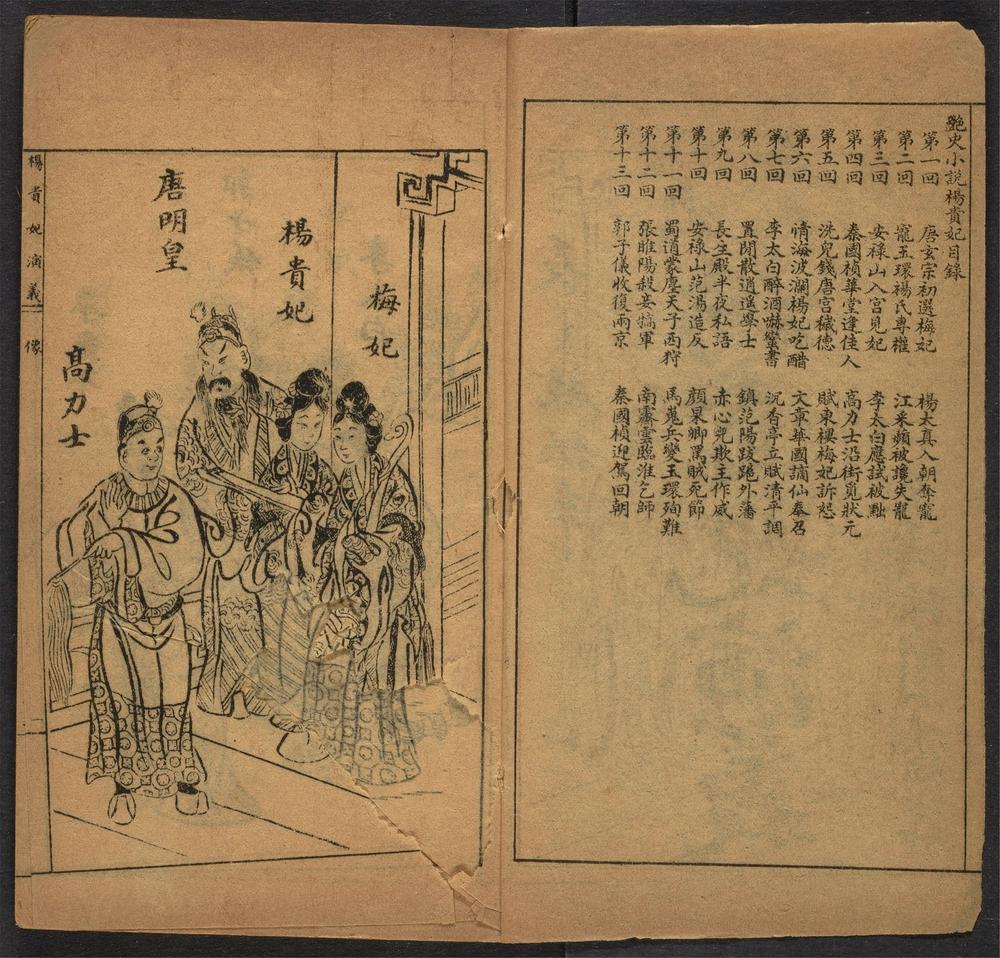 艶史小説楊貴妃目錄
第一回 唐玄宗初選梅妃 楊太真入朝奪寵
第二回 寵玉環楊氏專權 江采蘋被讒失寵
第三回 安祿山入宮見妃 李太白應試被黜
第四回 秦國楨華堂逢佳人 高力士沿街覓狀元
第五回 洗兒錢唐宮穢德 賦東樓梅妃訴怨
第六回 情海波瀾楊妃吃醋 文章華國謫仙奉召
第七回 李太白醉酒嚇蠻書 沉香亭立賦清平調
第八回 置閒散逍遥學士 鎮范陽跋扈外藩
第九回 長生殿半夜私語 赤心兒欺主作威
第十回 安祿山范陽造反 顏杲卿罵賊死節
第十一回 蜀道蒙塵天子西狩 馬嵬兵變玉環殉難
第十二回 張睢陽殺妾犒軍 南霽雲臨淮乞師
第十三回 郭子儀收復兩京 秦國楨迎駕回朝
梅妃
楊貴妃
唐明皇
高力士
楊貴妃演義 像
二